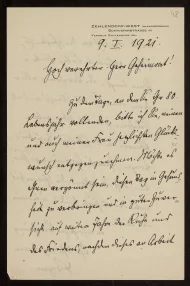 ZEHLENDORF-WEST
9. I. 1921.
Hochverehrter Herr Geheimrat!
Zu dem Tage, an dem Sie Ihr 80.
Lebensjahr vollenden, bitte ich Sie, meinen
und auch meiner Frau herzlichsten Glück-
wunsch entgegenzunehmen. Möchte es
Ihnen vergönnt sein, diesen Tag in Gesund-
heit zu verbringen und in guter
sich auf weitere Jahre der Ruhe und
des Friedens, nach dieses an Arbeit